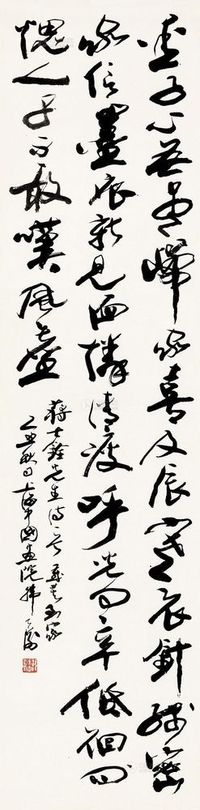 愛子心無盡歸家喜及辰寒衣針線密
家信墨痕新見面憐清瘦呼兒問辛低徊
愧人子不敢嘆風塵
蔣士銓先生詩一首 到家
乙丑秋日上海中國畫院韓天衡